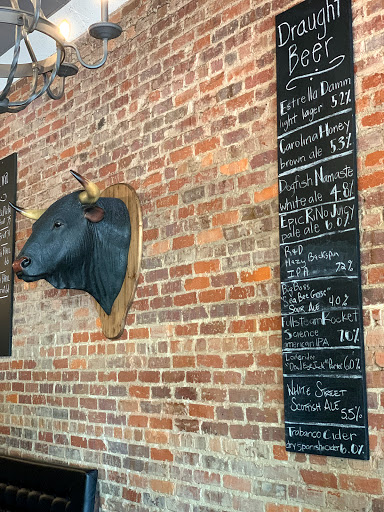 Draught
Beer
Estrella Damm
light lager 5.2%
Carolina Honey
brown ale 5.3%
Dogfish Namaste
white ale 4.8%
Epic RiNo Juicy
pale ale 6.0%
R&D
Hazy
IPA 7.2%
Big Boss
Bee Goose
Sour Ale 4.0%
Fullsteam Rocket
Science 7.0%
american IPA
6.0%
White Street
Scottish Ale
5.5%
Trabanco Cider
dry spanish cider 6.0%